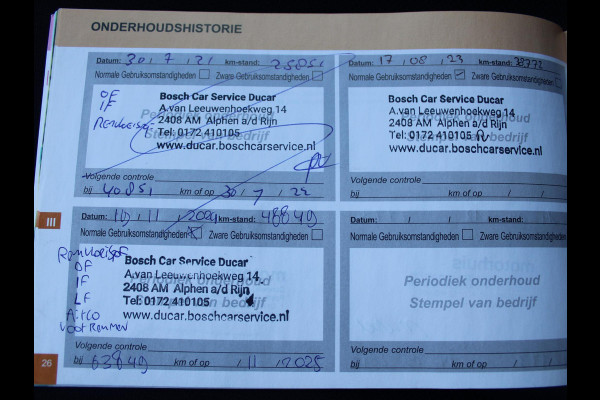 ONDERHOUDSHISTORIE
Datum: 30 / 7 / 21 km-stand: 25851
Normale Gebruiksomstandigheden Zware Gebruiksomstandigheden
OF
IF
Bosch Car Service Ducar
A.van Leeuwenhoekweg 14
2408 AM Alphen a/d Rijn
Tel: 0172 410105
www.ducar.boschcarservice.nl
Periodiek onderhoud
Stempel van bedrijf
Volgende controle
bij 40851 km of op 30 / 7 / 22
Datum: 17 / 08 / 23 km-stand:
Normale Gebruiksomstandigheden Zware Gebruiksomstandigheden
Bosch Car Service Ducar
A.van Leeuwenhoekweg 14
2408 AM Alphen a/d Rijn
Tel: 0172 410105
www.ducar.boschcarservice.nl
Periodiek onderhoud
Stempel van bedrijf
Volgende controle
bij km of op / /
III
Datum: / 11 / 2024 km-stand: 48849
Normale Gebruiksomstandigheden Zware Gebruiksomstandigheden
Remvloeistof
OF
IF
LF
Airco
voor Remmen
Bosch Car Service Ducar
A.van Leeuwenhoekweg 14
2408 AM Alphen a/d Rijn
Tel: 0172 410105
www.ducar.boschcarservice.nl
Periodiek onderhoud
Stempel van bedrijf
Volgende controle
bij 63849 km of op / 11 / 2025
Datum: / / km-stand:
Normale Gebruiksomstandigheden Zware Gebruiksomstandigheden
Periodiek onderhoud
Stempel van bedrijf
Volgende controle
bij km of op / /
26